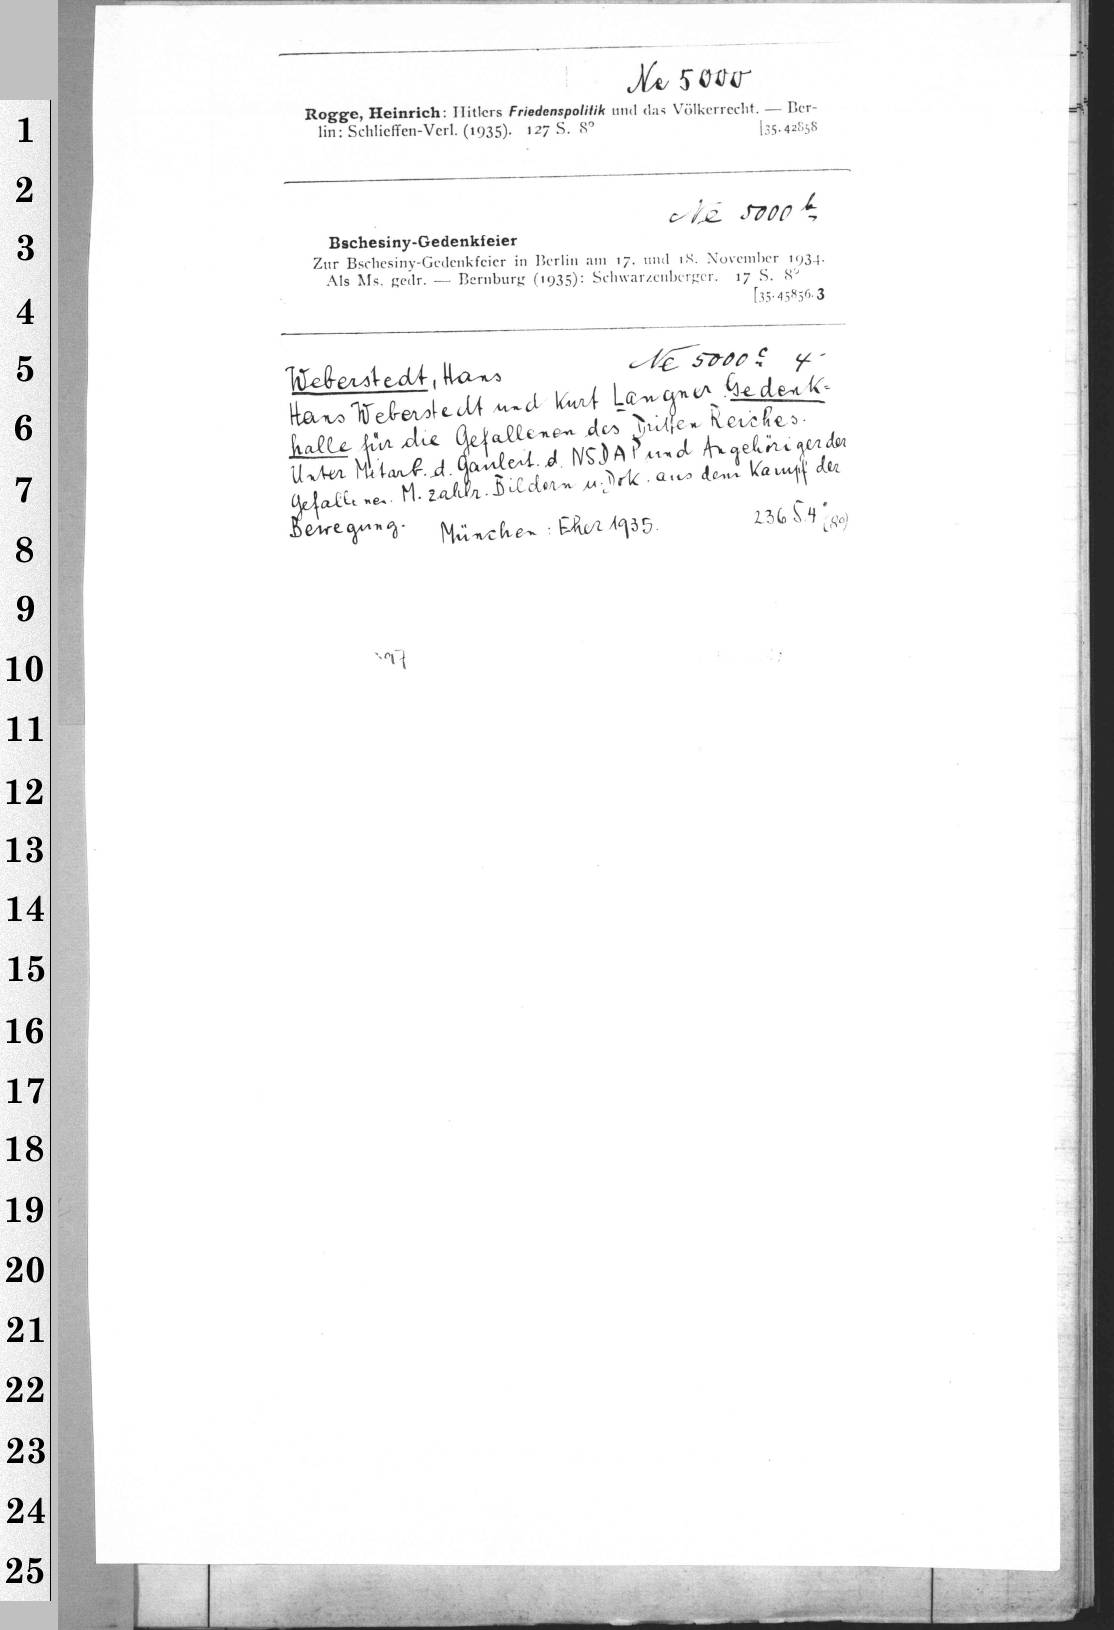 Ne 5000
Rogge, Heinrich: Hitlers Friedenspolitik und das Völkerrecht. — Ber-
lin: Schlieffen-Verl. (1935). 127 S. 8° [35. 42858
Ne 5000 b
Bschesiny-Gedenkfeier
Zur Bschesiny-Gedenkfeier in Berlin am 17. und 18. November 1934.
Als Ms. gedr. — Bernburg (1935): Schwarzenberger. 17 S. 8°
[35. 45856. 3
Ne 5000 c 4°
Weberstedt, Hans
Hans Weberstedt und Kurt Langner Gedenk=
halle für die Gefallenen des Dritten Reiches.
Unter Mitarb. d. Gauleit. d. NSDAP und Angehöriger der
Gefallenen. M. zahlr. Bildern u. Dok. aus dem Kampf der
Bewegung. München: Eher 1935. 236 S. 4° (8°)
1
2
3
4
5
6
7
8
9
10
11
12
13
14
15
16
17
18
19
20
21
22
23
24
25